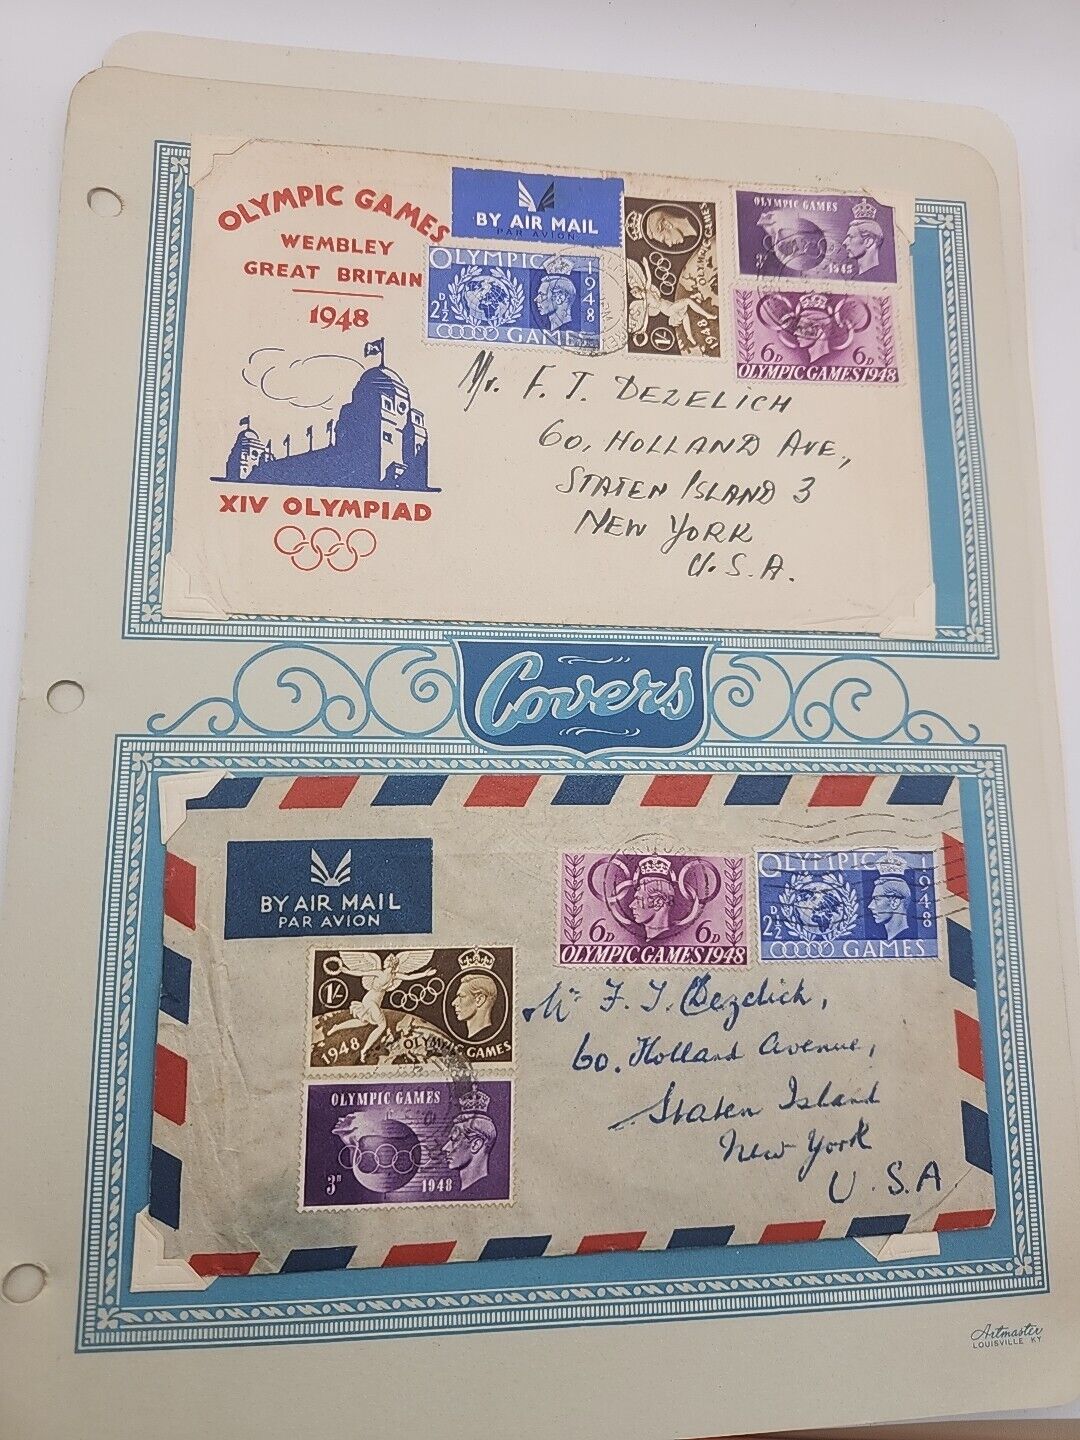 OLYMPIC GAMES
WEMBLEY
GREAT BRITAIN
1948
XIV OLYMPIAD
BY AIR MAIL
PAR AVION
OLYMPIC 1948
2½D
GAMES
1/-
OLYMPIC GAMES
1948
OLYMPIC GAMES
3D 1948
6D 6D
OLYMPIC GAMES 1948
Mr. F. T. DEZELICH
60, HOLLAND AVE.,
STATEN ISLAND 3
NEW YORK
U.S.A.
Covers
BY AIR MAIL
PAR AVION
6D 6D
OLYMPIC GAMES 1948
OLYMPIC 1948
2½D
GAMES
1/-
1948 OLYMPIC GAMES
OLYMPIC GAMES
3D 1948
Mr F. T. Dezelich,
60. Holland Avenue,
Staten Island
New York
U.S.A.
Artmaster
LOUISVILLE KY